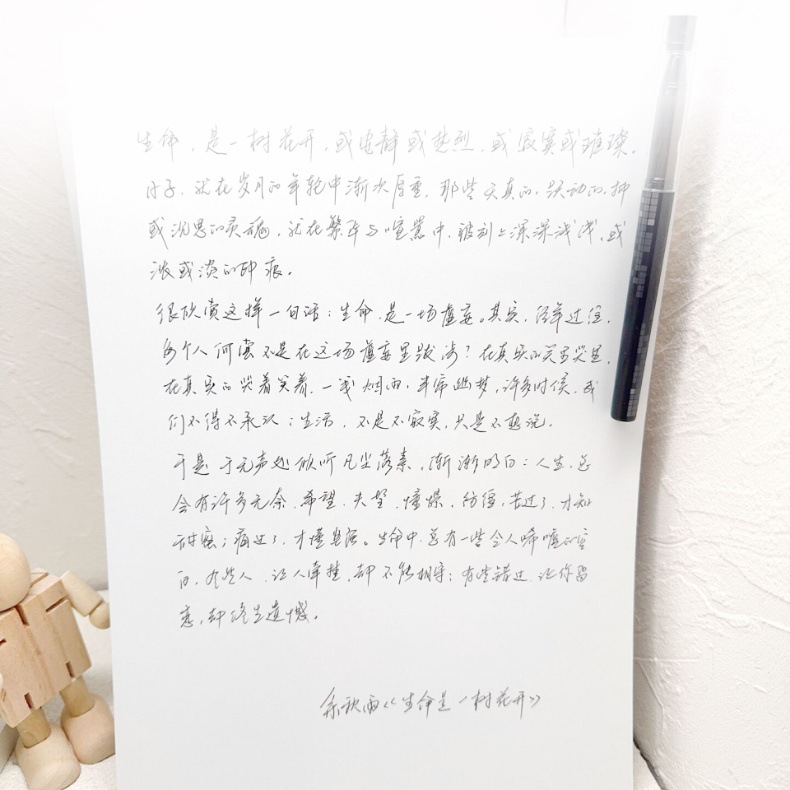 生命,是一树花开,或安静或热烈,或寂寞或璀璨。
日子,就在岁月的年轮中渐次厚重,那些天真的、跃动的、抑
或沉思的灵魂,就在繁华与喧嚣中,被刻上深深浅浅、或
浓或淡的印痕。
很欣赏这样一句话:生命,是一场虚妄。其实,经年过往,
每个人何尝不是在这场虚妄里跋涉?在真实的笑里哭着,
在真实的哭着笑着,一笺烟雨,半帘幽梦,许多时候,我
们不得不承认:生活,不是不寂寞,只是不想说。
于是于无声处倾听凡尘落素,渐渐明白:人生,总
会有许多无奈,希望、失望、憧憬、彷徨,苦过了,才知
甜蜜;痛过了,才懂坚强。生命中,总有一些令人唏嘘的空
白,有些人,让人牵挂,却不能相守;有些错过,让你留
恋,却终生遗憾。
余秋雨《生命是一树花开》